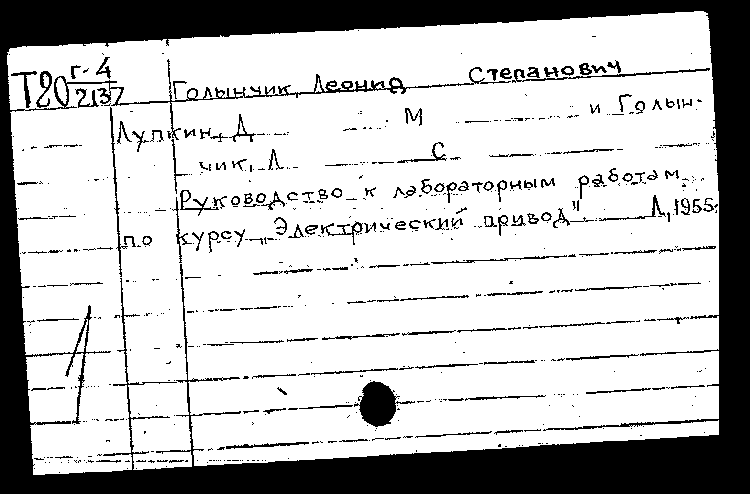 Т20 г-4/2137
Голынчик, Леонид Степанович
Лупкин, Д М и Голын-
чик, Л С
Руководство к лабораторным работам
по курсу „Электрический привод". Л, 1955.
1